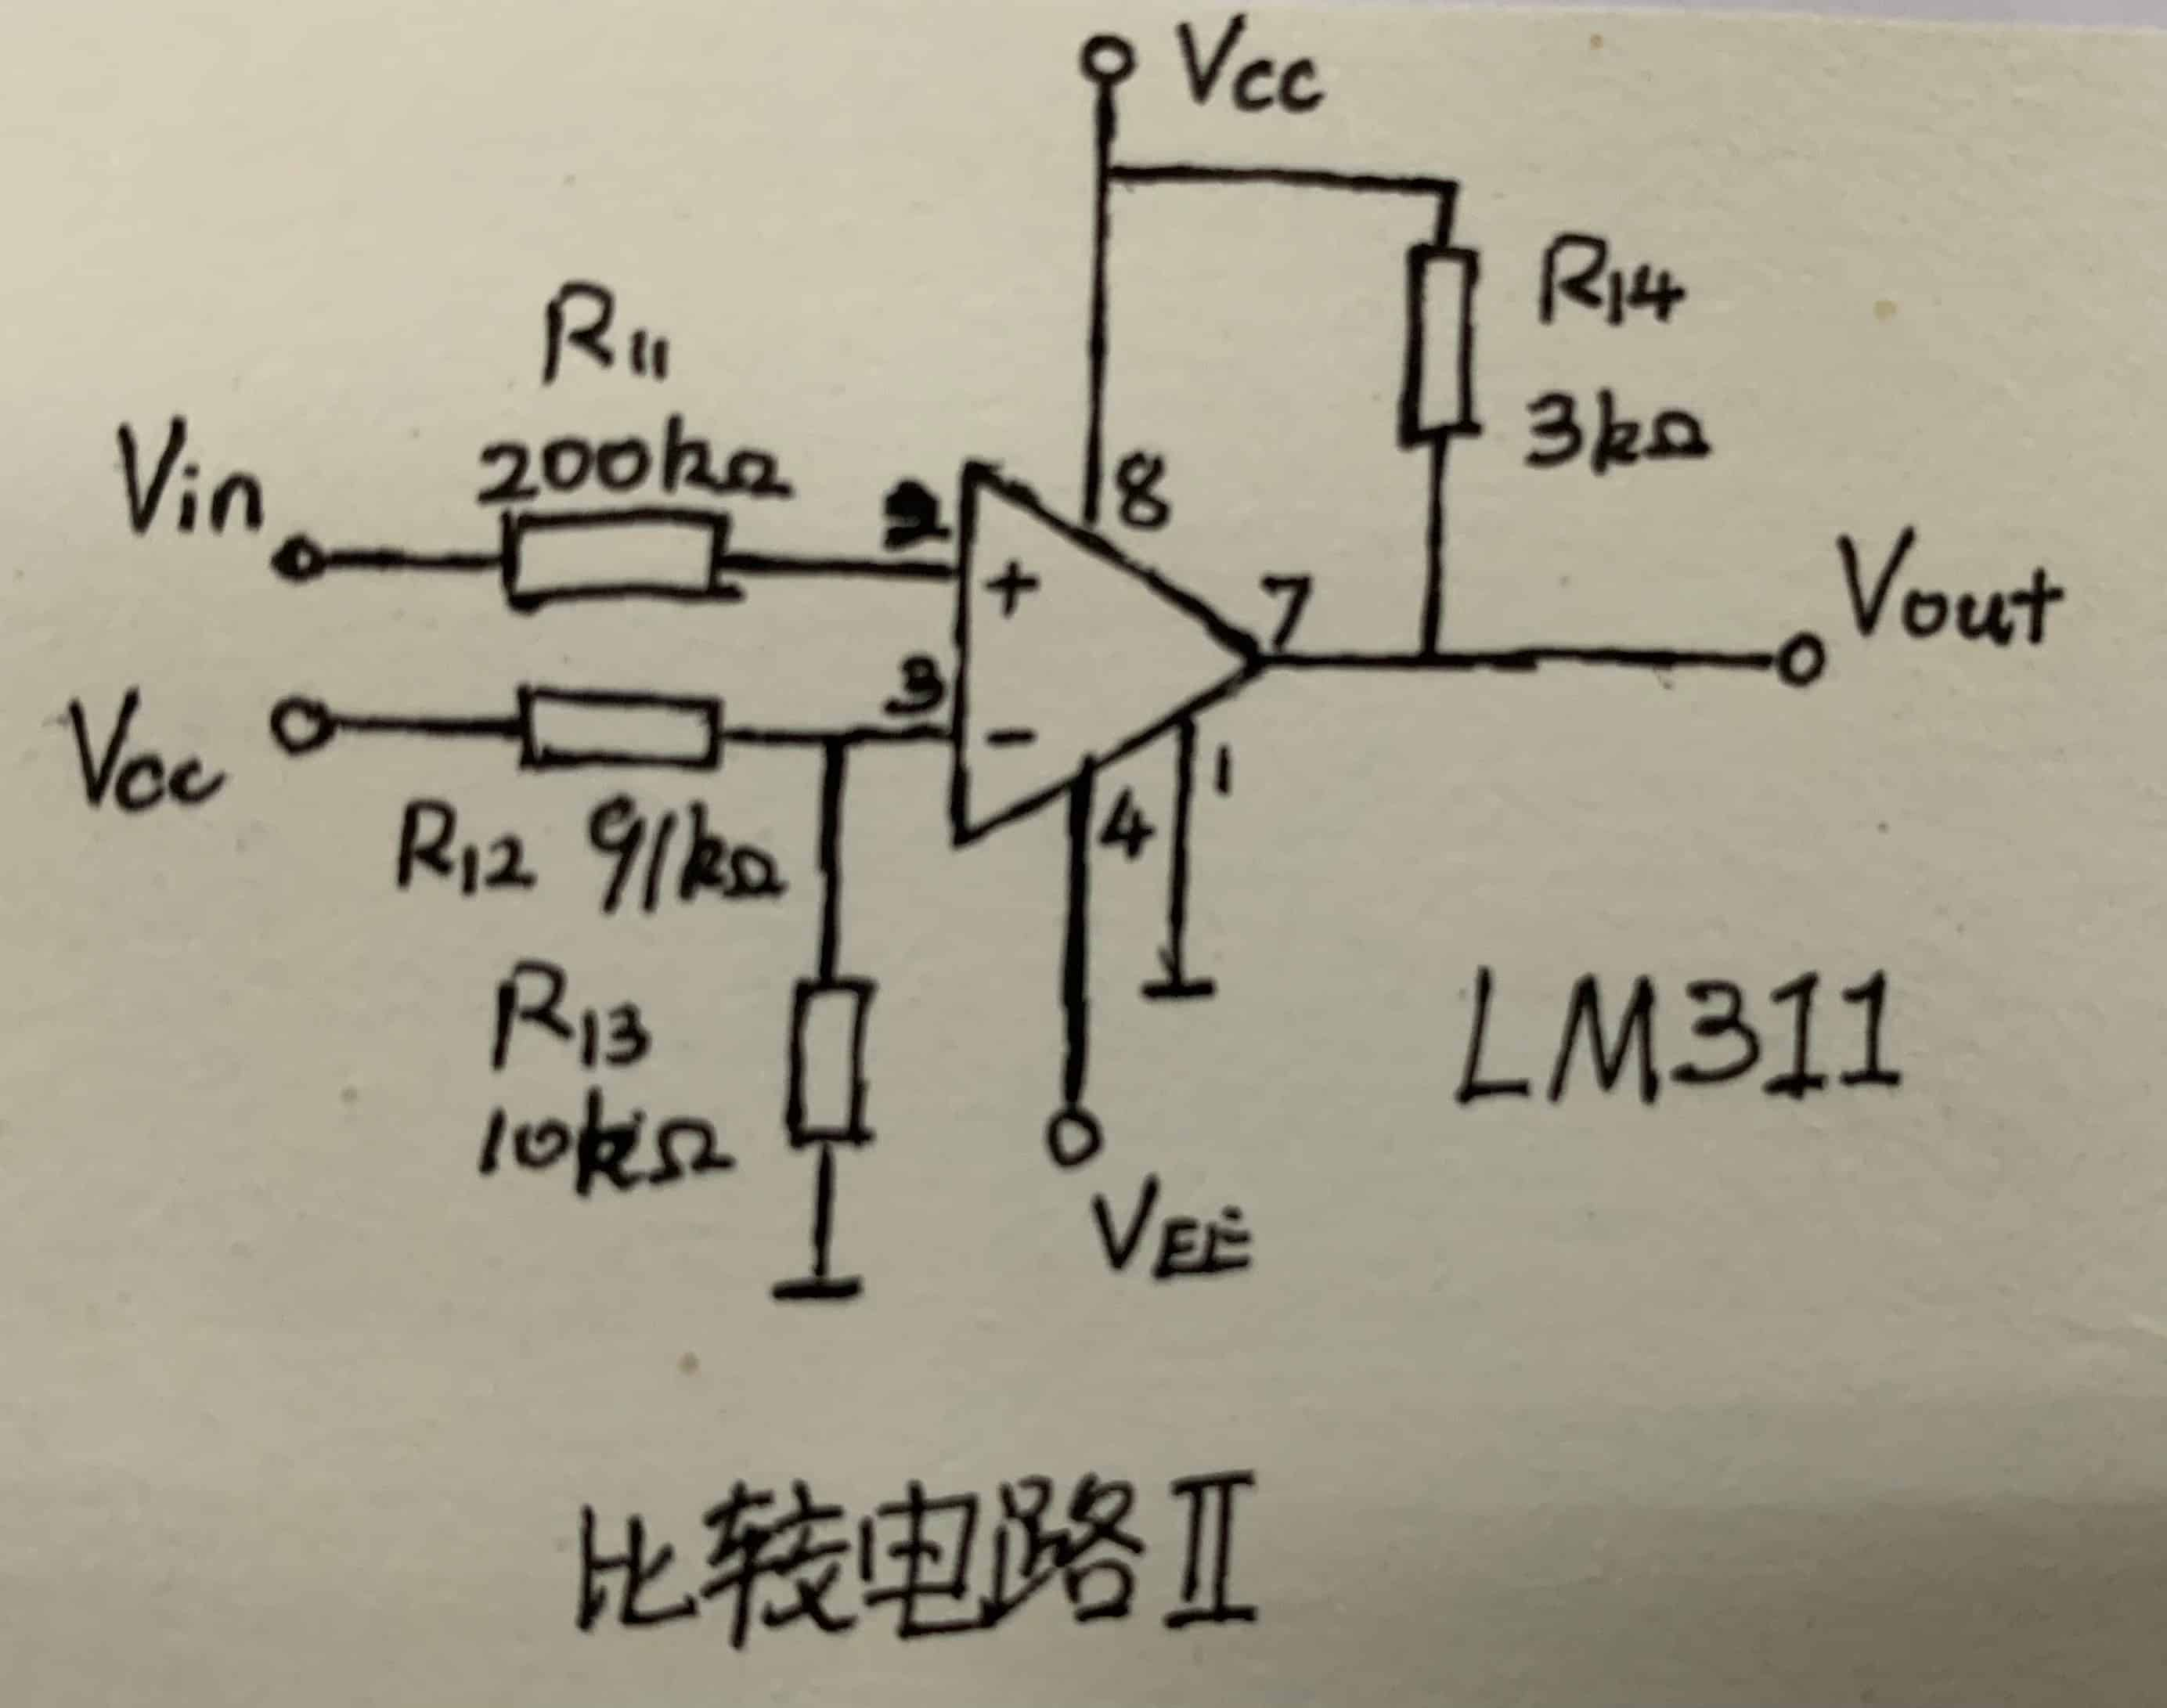 Vcc
R11
200kΩ
R14
3kΩ
Vin
2
8
+
7
Vout
3
-
Vcc
R12 91kΩ
4
1
R13
10kΩ
LM311
VEE
比较电路Ⅱ